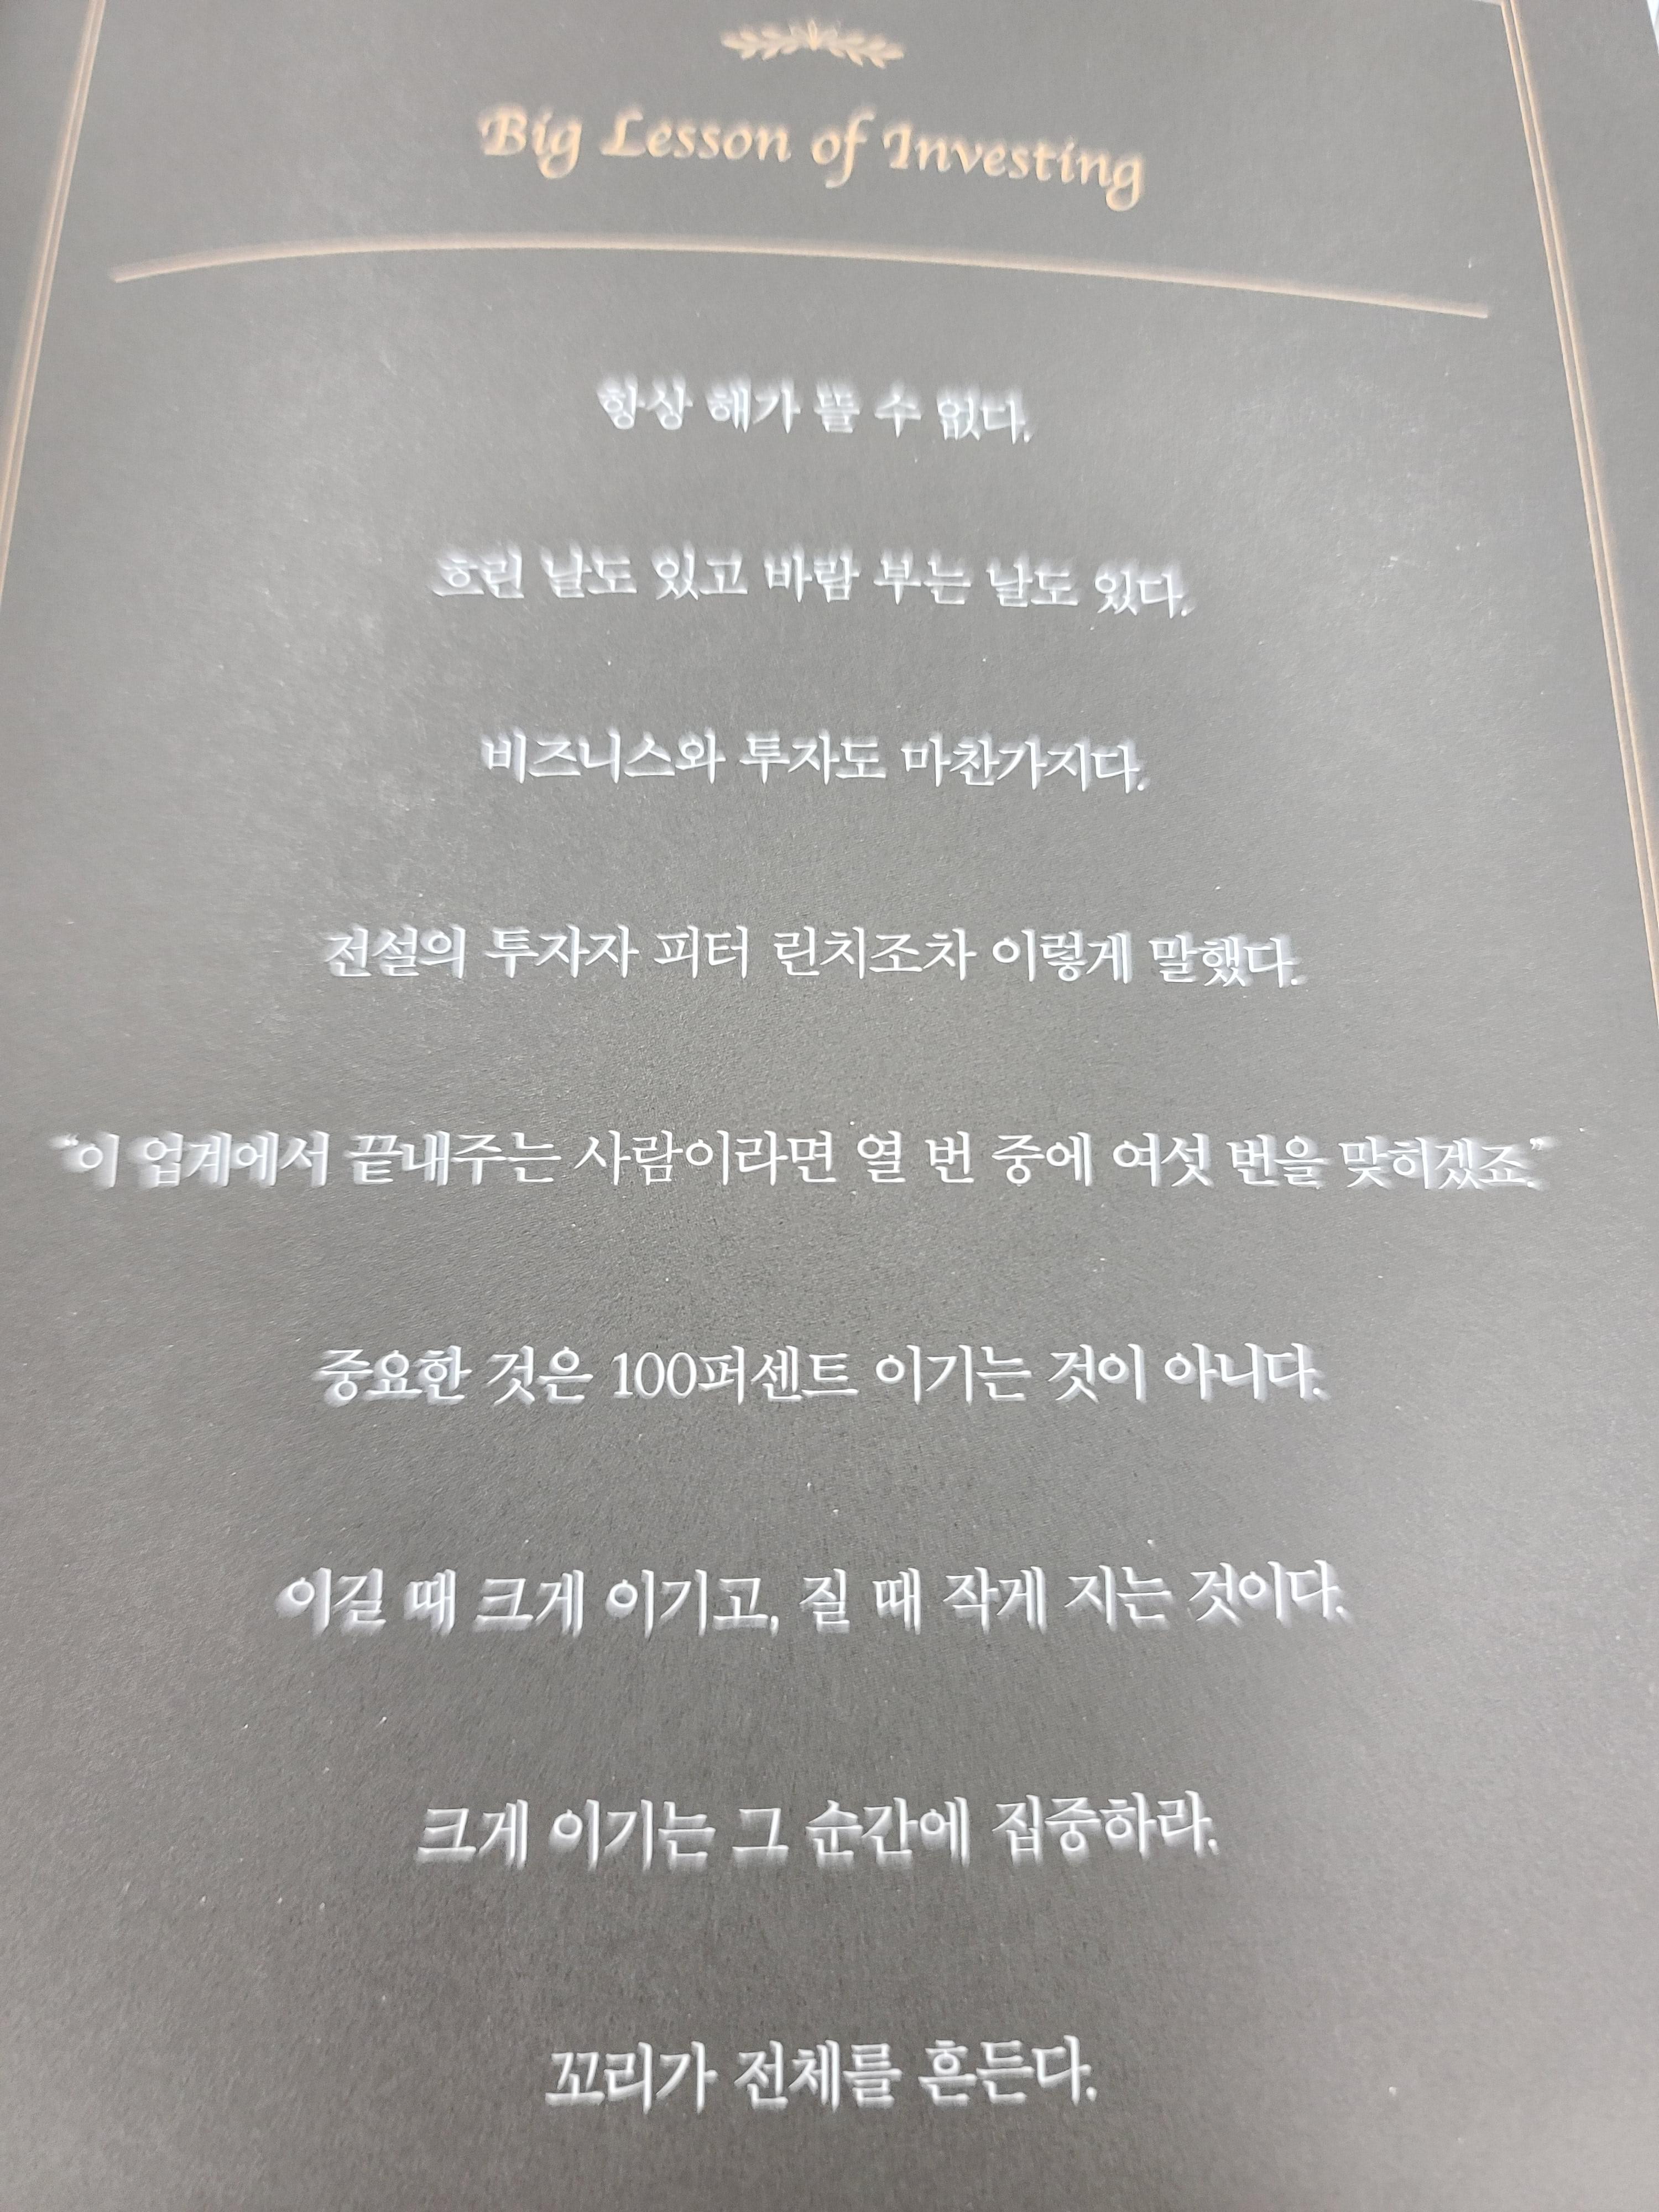 Big Lesson of Investing
항상 해가 뜰 수 없다.
흐린 날도 있고 바람 부는 날도 있다.
비즈니스와 투자도 마찬가지다.
전설의 투자자 피터 린치조차 이렇게 말했다.
“이 업계에서 끝내주는 사람이라면 열 번 중에 여섯 번을 맞히겠죠.”
중요한 것은 100퍼센트 이기는 것이 아니다.
이길 때 크게 이기고, 질 때 작게 지는 것이다.
크게 이기는 그 순간에 집중하라.
꼬리가 전체를 흔든다.